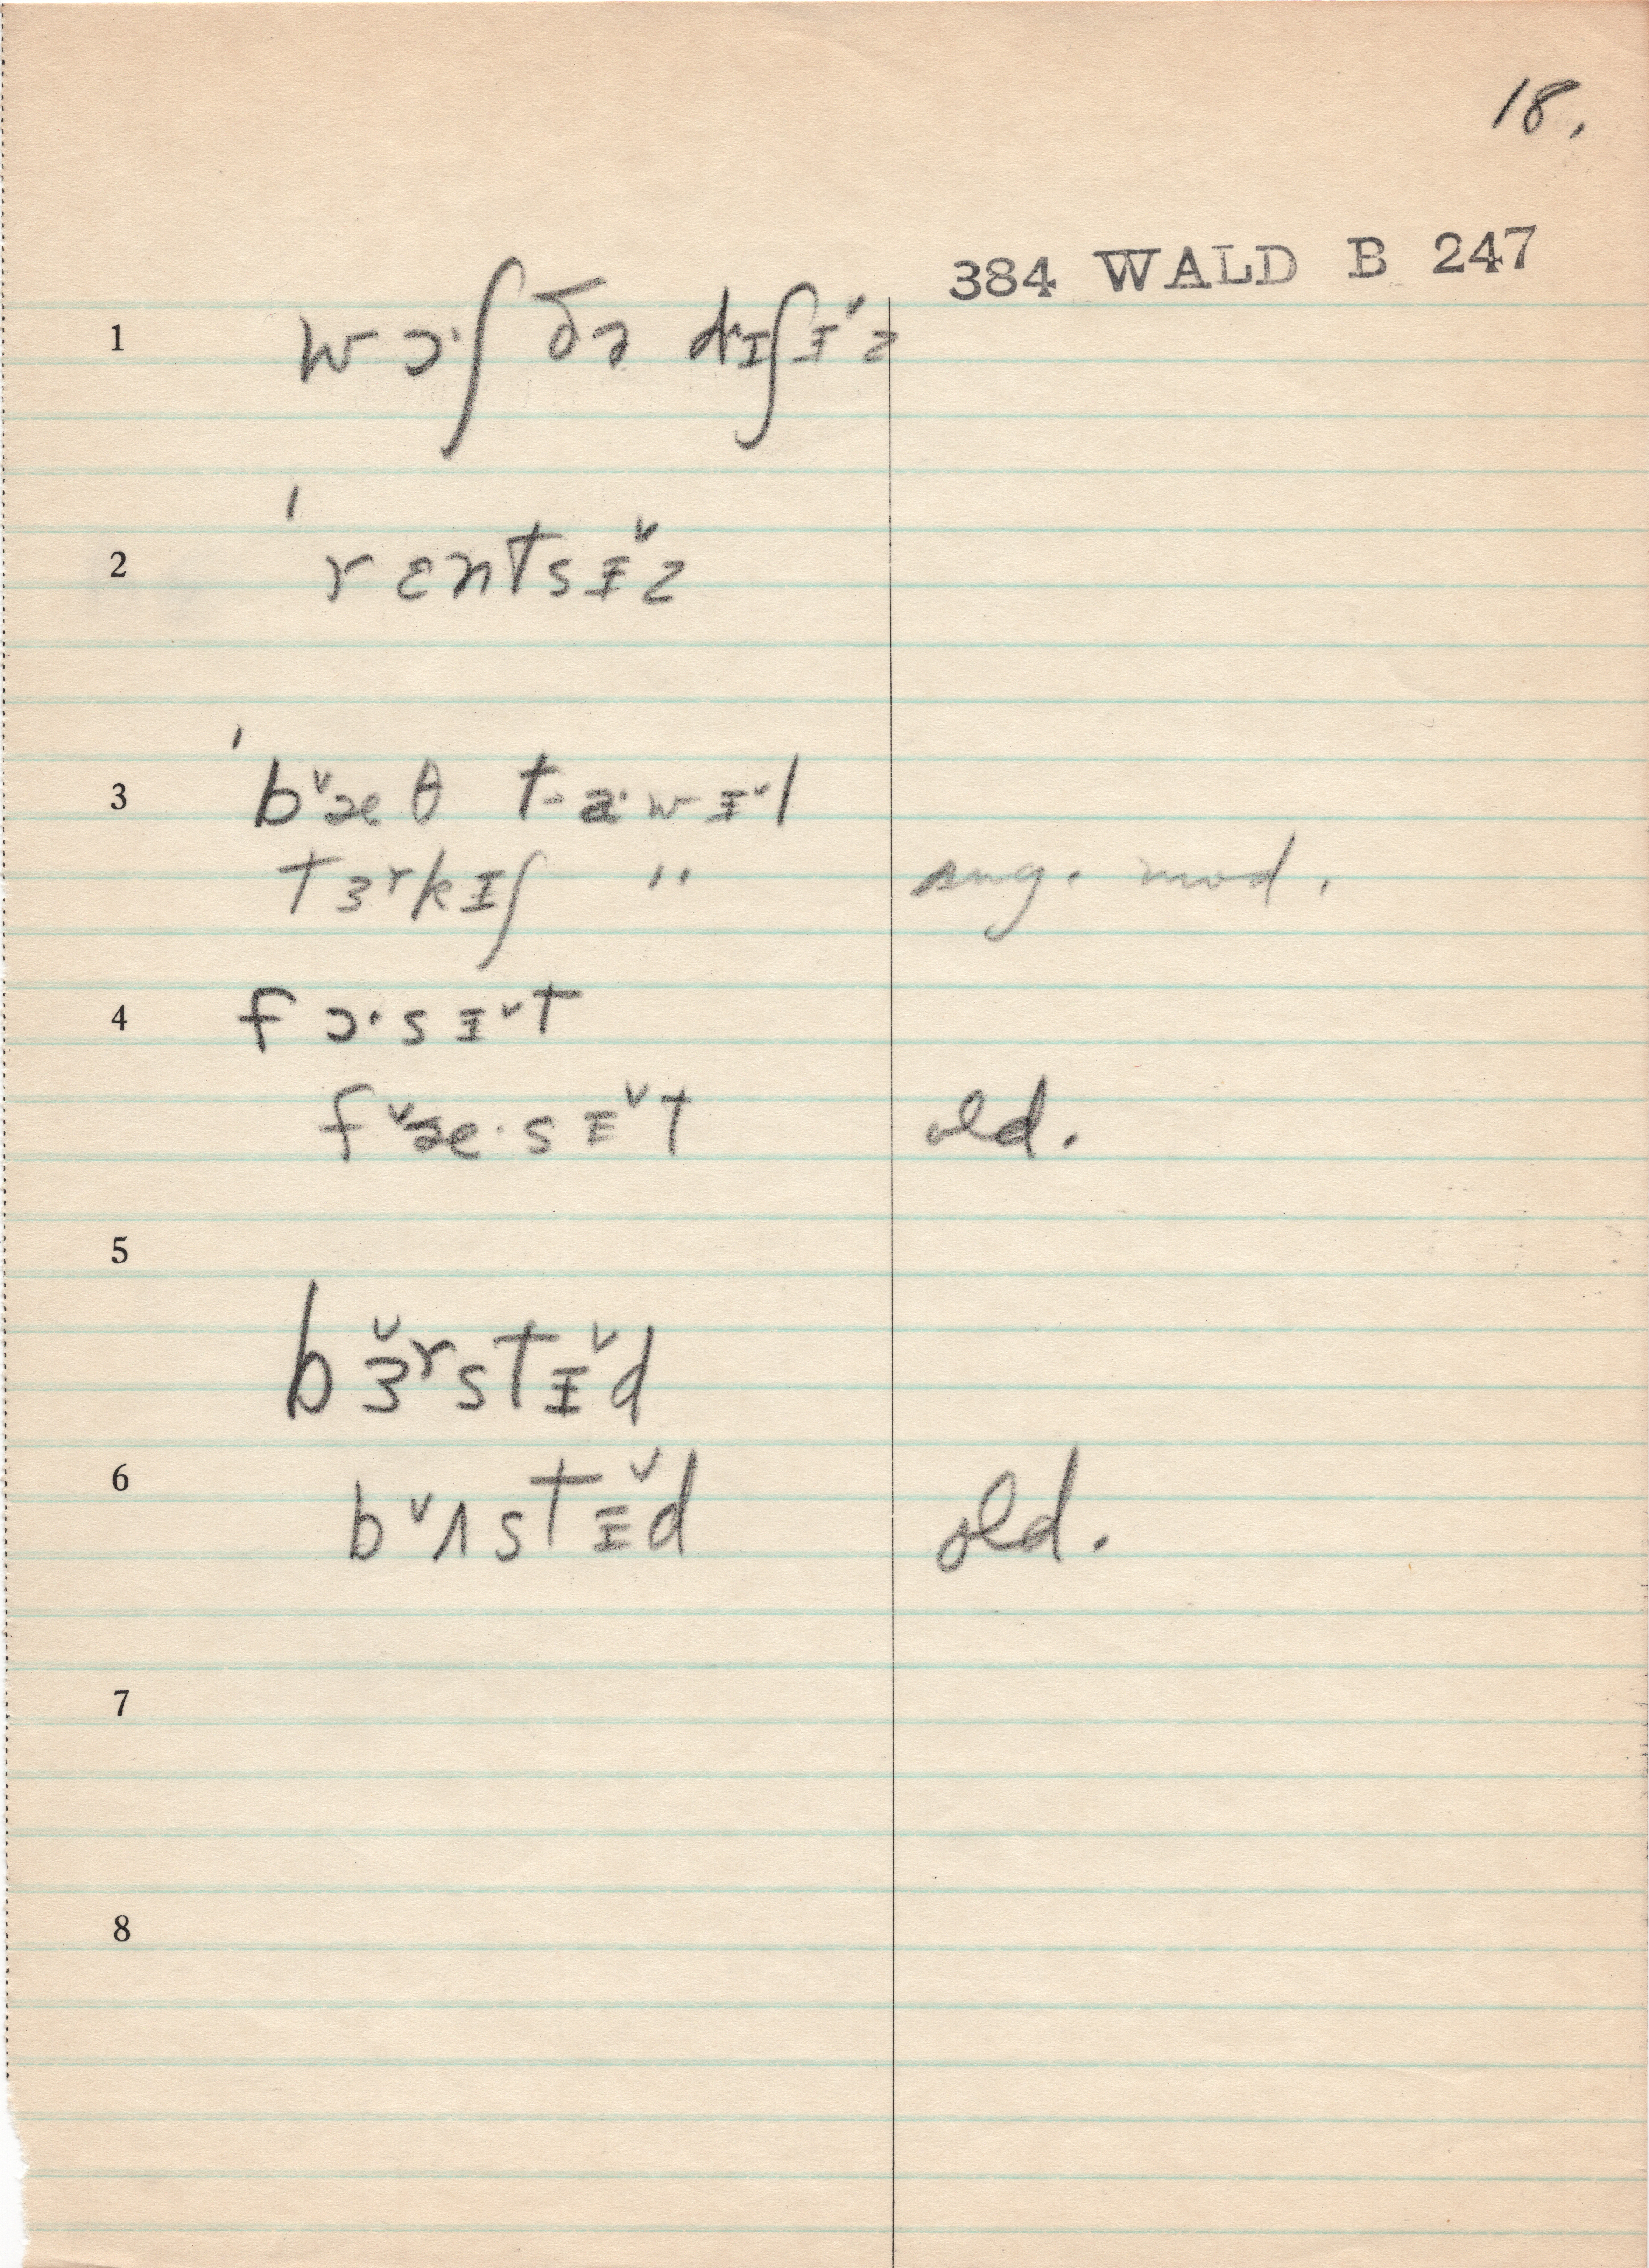 18.
384 WALD B 247
1 wɔ·ʃ ðə dɪʃɨ˅z
2 ˈrɛntsɨ˅z
3 ˈb˅æθ ta·wɨ˅l
tɜʳkɪʃ " sug. mod.
4 fɔ·sɨ˅t
f˅æ·sɨ˅t old.
5
bɜ˅ʳstɨ˅d
6 b˅ʌstɨ˅d old.
7
8